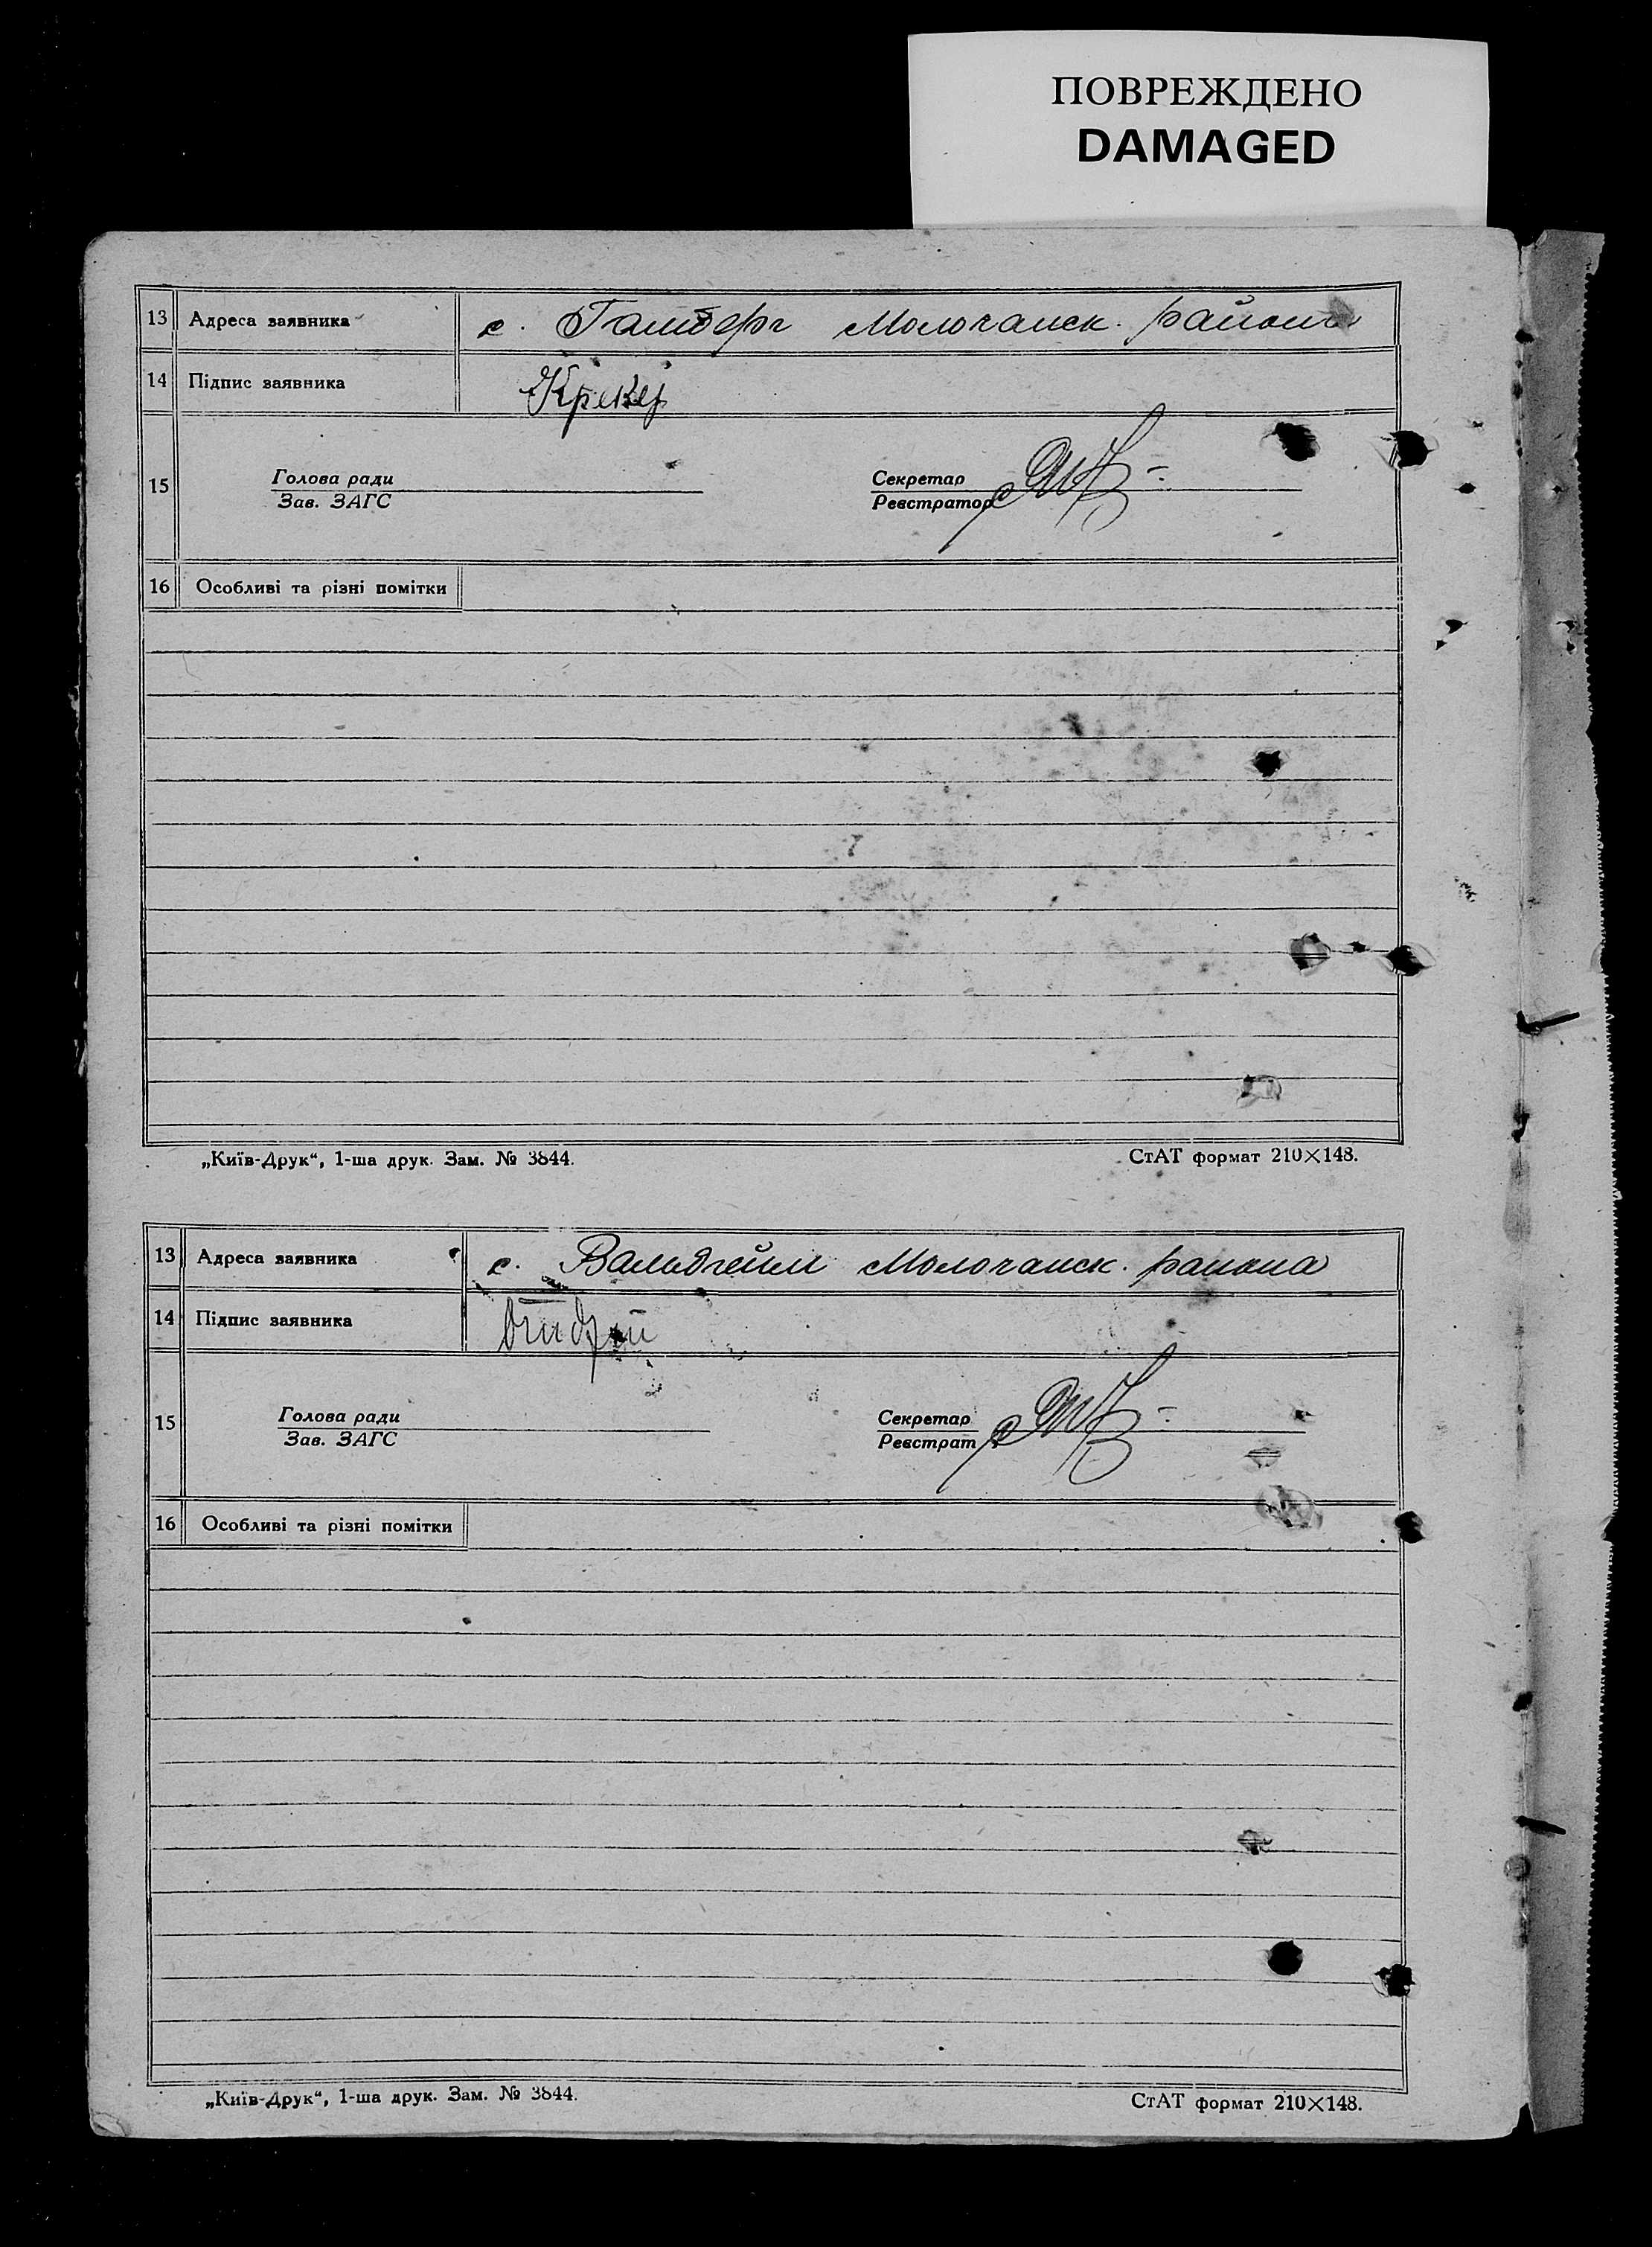 ПОВРЕЖДЕНО
DAMAGED
13 Адреса заявника с. Гамберг Молочанск. района
14 Підпис заявника Крекер
15 Голова ради Секретар
Зав. ЗАГС Реєстратор
16 Особливі та різні помітки
„Київ-Друк“, 1-ша друк. Зам. № 3844. СтАТ формат 210×148.
13 Адреса заявника с. Вальдгейм Молочанск. района
14 Підпис заявника
15 Голова ради Секретар
Зав. ЗАГС Реєстрат
16 Особливі та різні помітки
„Київ-Друк“, 1-ша друк. Зам. № 3844. СтАТ формат 210×148.